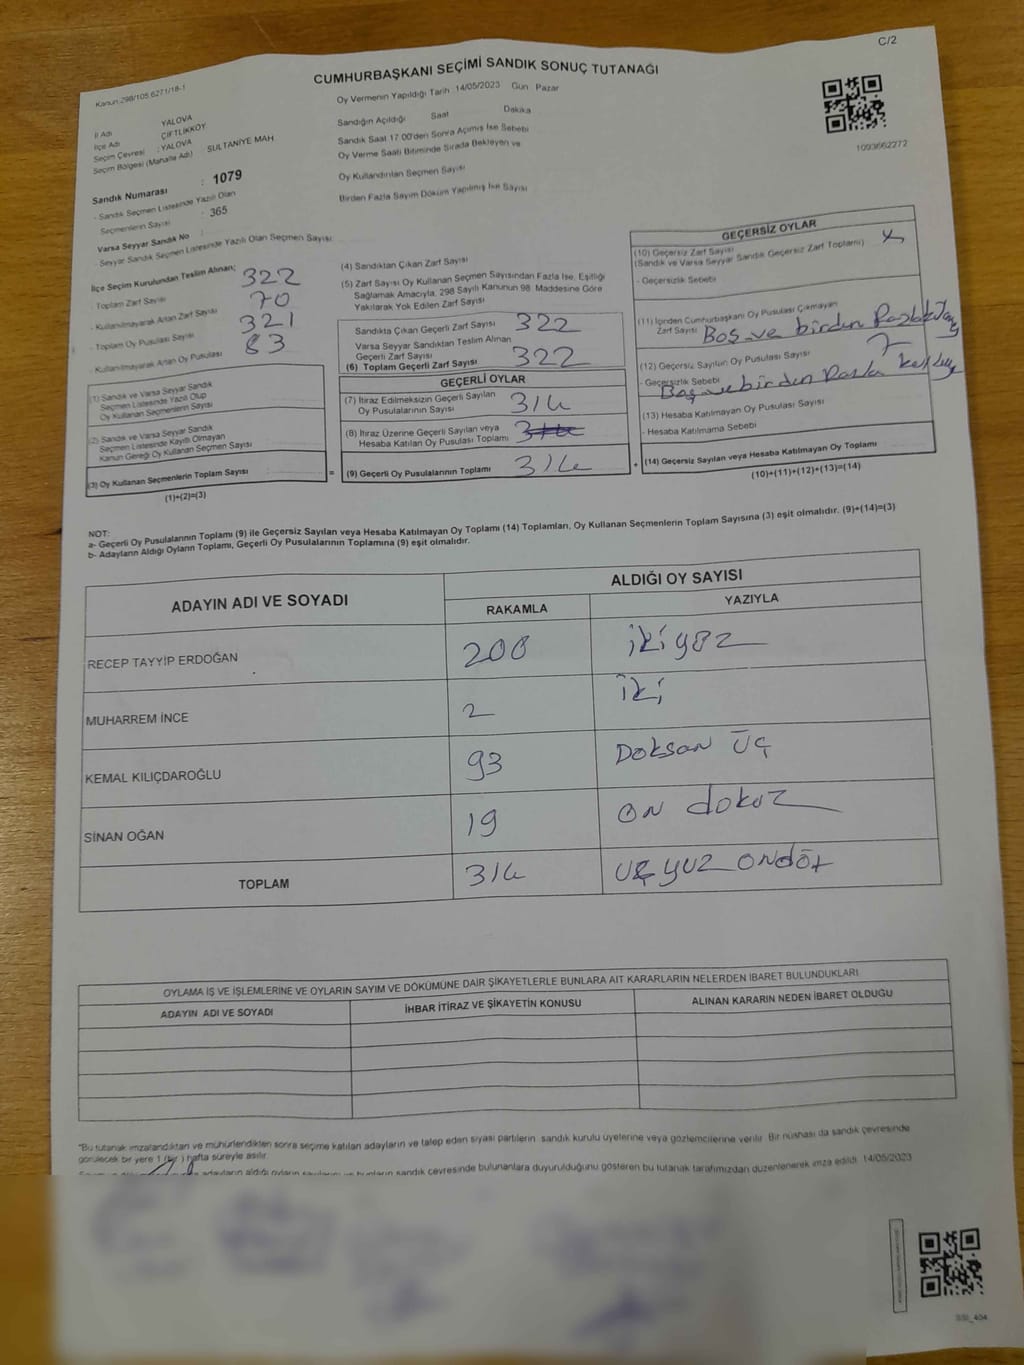 C/2
CUMHURBAŞKANI SEÇİMİ SANDIK SONUÇ TUTANAĞI
Kanun 298/105 6271/18-1
Oy Vermenin Yapıldığı Tarih 14/05/2023 Gün Pazar
İl Adı YALOVA
İlçe Adı ÇİFTLİKKÖY
Seçim Çevresi : YALOVA
Seçim Bölgesi (Mahalle Adı) : SULTANİYE MAH
Sandığın Açıldığı Saat Dakika
Sandık Saat 17:00'den Sonra Açımış İse Sebebi
Oy Verme Saati Bitiminde Sırada Bekleyen ve
Oy Kullandırılan Seçmen Sayısı
Birden Fazla Sayım Döküm Yapılmış İse Sayısı
1093662272
Sandık Numarası : 1079
- Sandık Seçmen Listesinde Yazılı Olan
Seçmenlerin Sayısı : 365
Varsa Seyyar Sandık No :
- Seyyar Sandık Seçmen Listesinde Yazılı Olan Seçmen Sayısı
İlçe Seçim Kurulundan Teslim Alınan;
- Toplam Zarf Sayısı 322
- Kullanılmayarak Artan Zarf Sayısı 70
- Toplam Oy Pusulası Sayısı 321
- Kullanılmayarak Artan Oy Pusulası 83
(1) Sandık ve Varsa Seyyar Sandık
Seçmen Listesinde Yazılı Olup
Oy Kullanan Seçmenlerin Sayısı
(2) Sandık ve Varsa Seyyar Sandık
Seçmen Listesinde Kayıtlı Olmayan
Kanun Gereği Oy Kullanan Seçmen Sayısı
(3) Oy Kullanan Seçmenlerin Toplam Sayısı
(1)+(2)=(3)
=
(4) Sandıktan Çıkan Zarf Sayısı
(5) Zarf Sayısı Oy Kullanan Seçmen Sayısından Fazla İse, Eşitliği
Sağlamak Amacıyla, 298 Sayılı Kanunun 98. Maddesine Göre
Yakılarak Yok Edilen Zarf Sayısı
Sandıkta Çıkan Geçerli Zarf Sayısı 322
Varsa Seyyar Sandıktan Teslim Alınan
Geçerli Zarf Sayısı
(6) Toplam Geçerli Zarf Sayısı 322
GEÇERLİ OYLAR
(7) İtiraz Edilmeksizin Geçerli Sayılan
Oy Pusulalarının Sayısı 314
(8) İtiraz Üzerine Geçerli Sayılan veya
Hesaba Katılan Oy Pusulası Toplamı 314
(9) Geçerli Oy Pusulalarının Toplamı 314
+
GEÇERSİZ OYLAR
(10) Geçersiz Zarf Sayısı
(Sandık ve Varsa Seyyar Sandık Geçersiz Zarf Toplamı)
- Geçersizlik Sebebi
(11) İçinden Cumhurbaşkanı Oy Pusulası Çıkmayan
Zarf Sayısı Boş ve birden fazla
(12) Geçersiz Sayılan Oy Pusulası Sayısı 7
- Geçersizlik Sebebi Boş ve birden fazla
(13) Hesaba Katılmayan Oy Pusulası Sayısı
- Hesaba Katılmama Sebebi
(14) Geçersiz Sayılan veya Hesaba Katılmayan Oy Toplamı
(10)+(11)+(12)+(13)=(14)
NOT:
a- Geçerli Oy Pusulalarının Toplamı (9) ile Geçersiz Sayılan veya Hesaba Katılmayan Oy Toplamı (14) Toplamları, Oy Kullanan Seçmenlerin Toplam Sayısına (3) eşit olmalıdır. (9)+(14)=(3)
b- Adayların Aldığı Oyların Toplamı, Geçerli Oy Pusulalarının Toplamına (9) eşit olmalıdır.
ADAYIN ADI VE SOYADI ALDIĞI OY SAYISI
RAKAMLA YAZIYLA
RECEP TAYYİP ERDOĞAN 200 ikiyüz
MUHARREM İNCE 2 iki
KEMAL KILIÇDAROĞLU 93 Doksan Üç
SİNAN OĞAN 19 on dokuz
TOPLAM 314 üçyüz ondöt
OYLAMA İŞ VE İŞLEMLERİNE VE OYLARIN SAYIM VE DÖKÜMÜNE DAİR ŞİKAYETLERLE BUNLARA AİT KARARLARIN NELERDEN İBARET BULUNDUKLARI
ADAYIN ADI VE SOYADI İHBAR İTİRAZ VE ŞİKAYETİN KONUSU ALINAN KARARIN NEDEN İBARET OLDUĞU
"Bu tutanak imzalandıktan ve mühürlendikten sonra seçime katılan adayların ve talep eden siyasi partilerin sandık kurulu üyelerine veya gözlemcilerine verilir. Bir nüshası da sandık çevresinde
görülecek bir yere 1 (bir) hafta süreyle asılır.
adayların aldığı oyların sayılarını ve bunların sandık çevresinde bulunanlara duyurulduğunu gösteren bu tutanak tarafımızdan düzenlenerek imza edildi. 14/05/2023
SSI_404